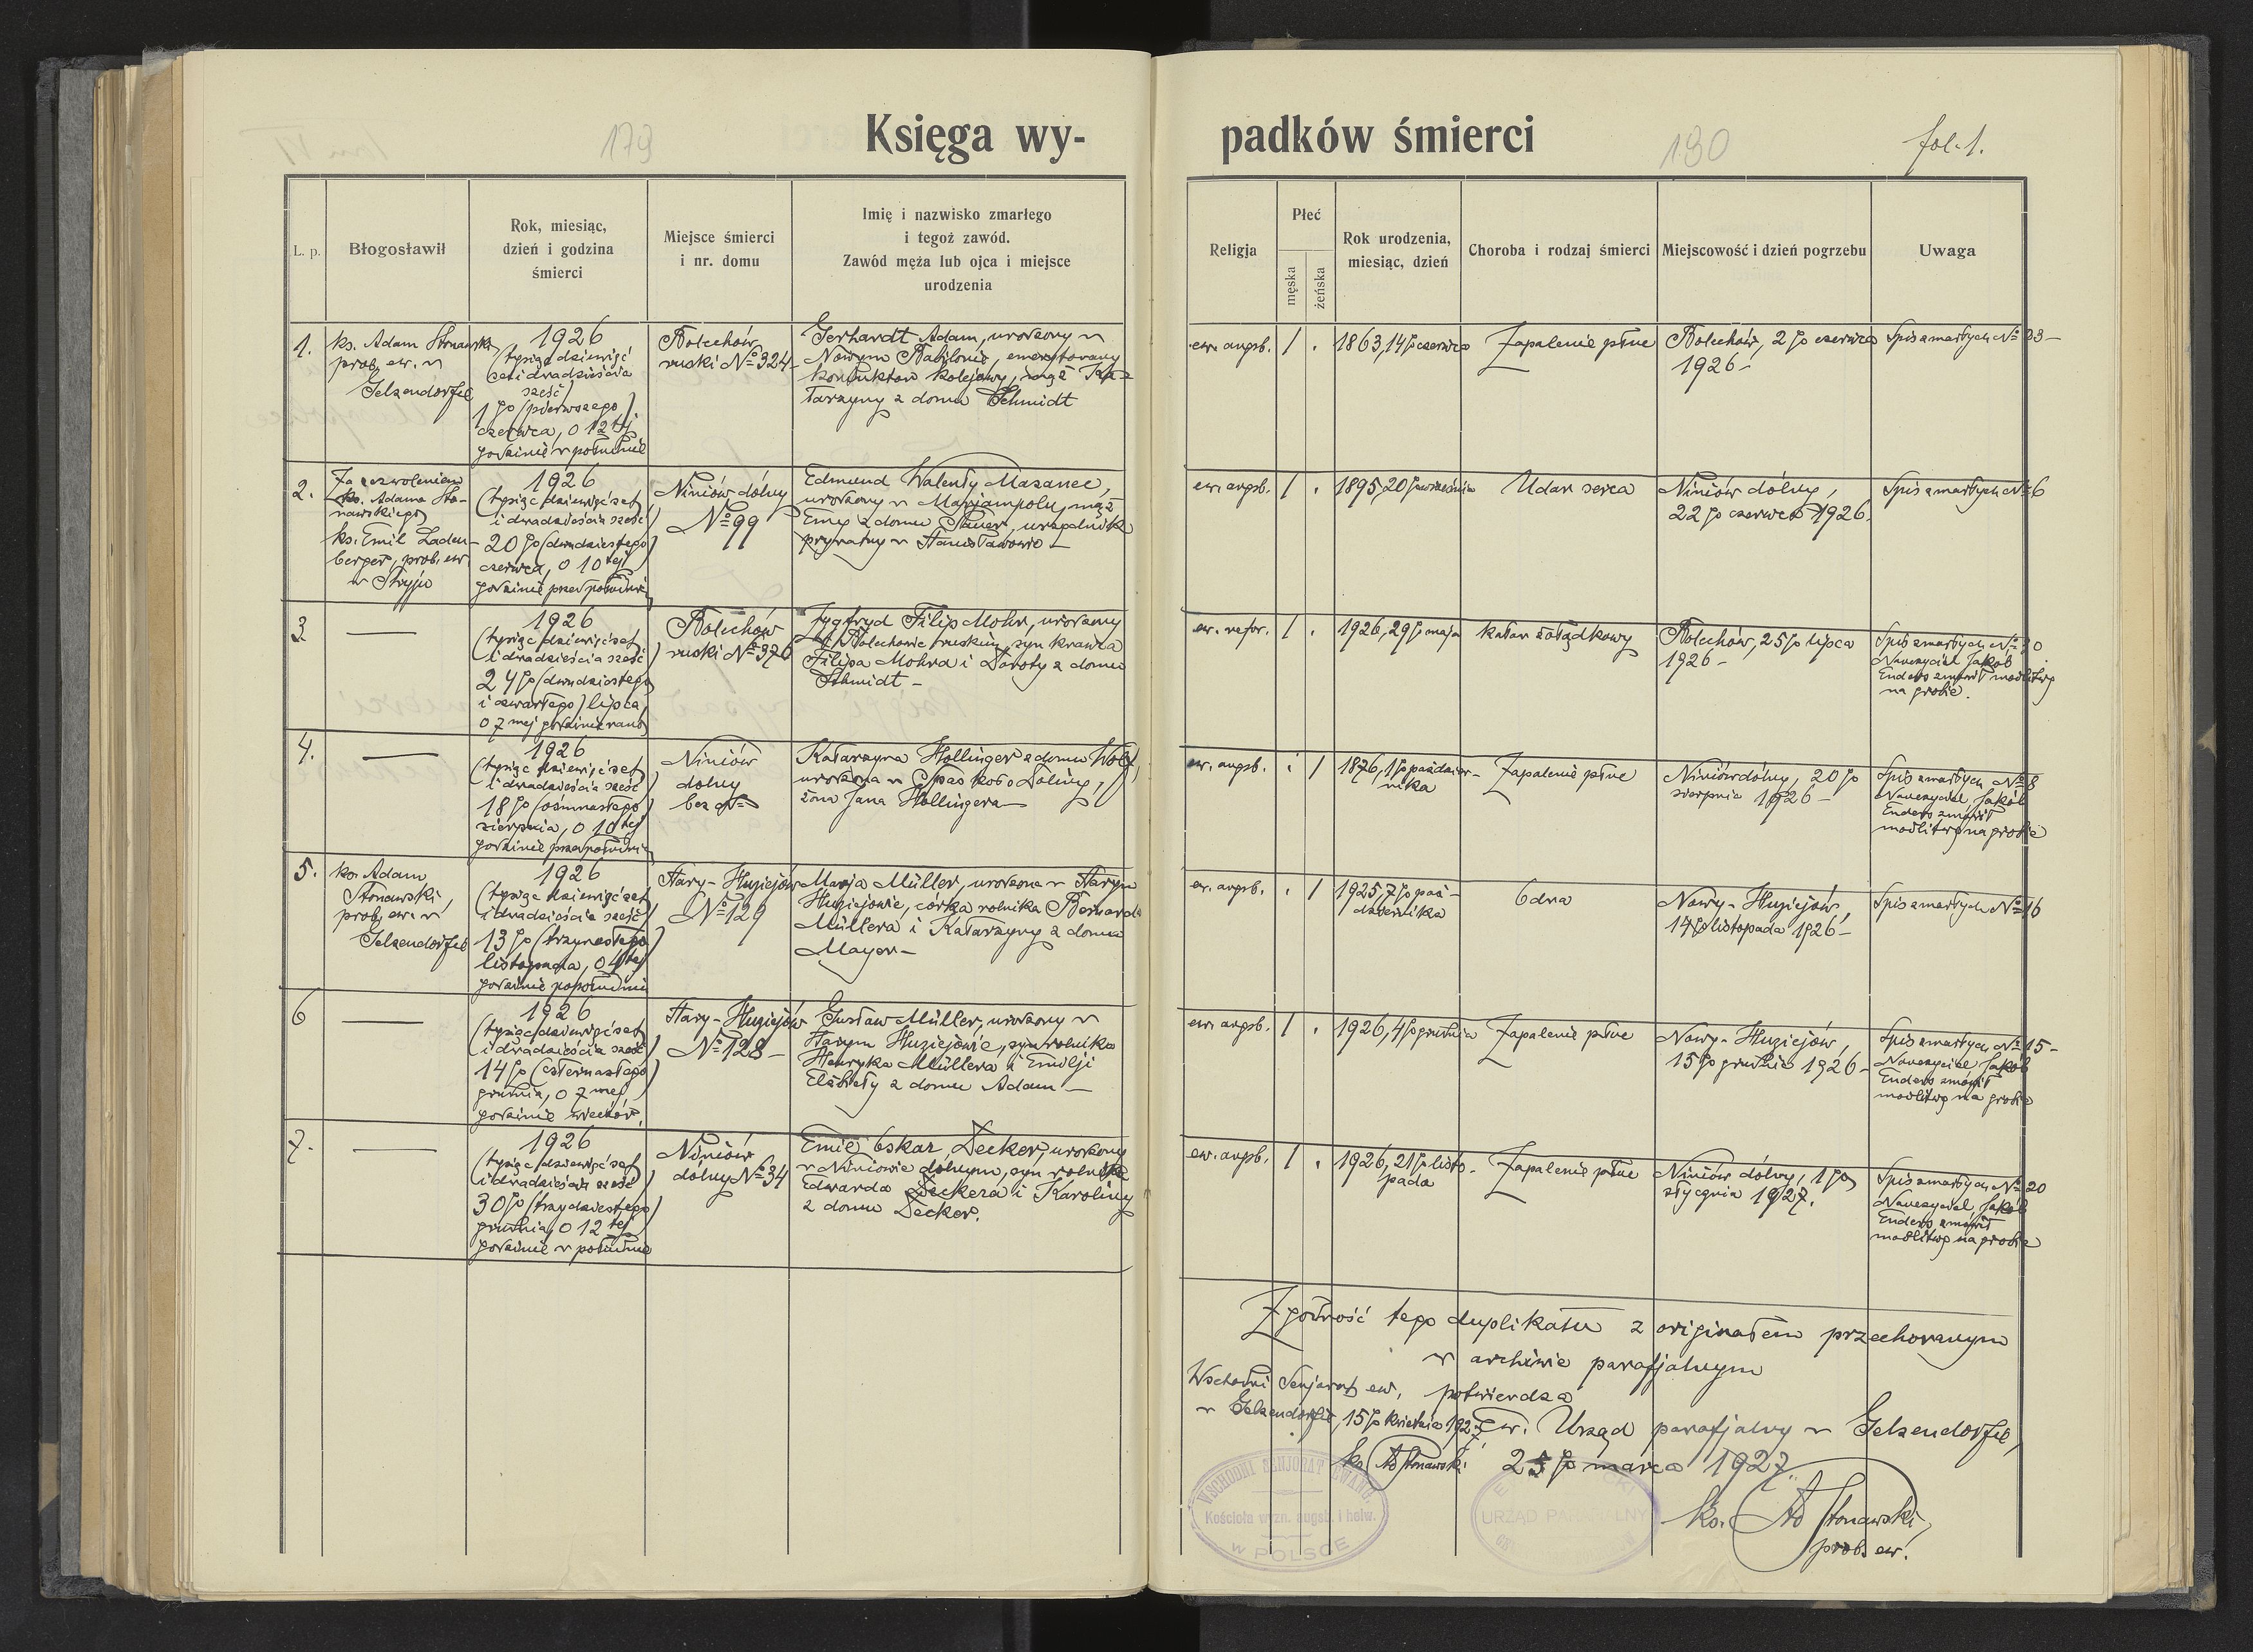 179
Księga wy-
padków śmierci
190
fol. 1.
L. p.
Błogosławił
Rok, miesiąc,
dzień i godzina
śmierci
Miejsce śmierci
i nr. domu
Imię i nazwisko zmarłego
i tegoż zawód.
Zawód męża lub ojca i miejsce
urodzenia
Religja
Płeć
męska
żeńska
Rok urodzenia,
miesiąc, dzień
Choroba i rodzaj śmierci
Miejscowość i dzień pogrzebu
Uwaga
1.
ks. Adam Stonawski
prob. ew. w
Gelsendorfie
1926
(tysiąc dziewięć
set i dwadzieścia
sześć)
1go (pierwszego)
czerwca, o 12tej
godzinie w południe
Bolechów
ruski No 324
Gerhardt Adam, urodzony w
Nowym Babilonie, emerytowany
konduktor kolejowy, mąż Ka-
tarzyny z domu Schmidt
ew. augsb.
1
.
1863, 14go czerwca
Zapalenie płuc
Bolechów, 2go czerwca
1926 -
Spis zmarłych No 23 -
2.
Za zezwoleniem
ks. Adama Sto-
nawskiego
ks. Emil Laden-
berger, prob. ew.
w Stryju
1926
(tysiąc dziewięćset
i dwadzieścia sześć)
20go (dwudziestego)
czerwca, o 10tej
godzinie przed południem
Niniów dólny
No 99
Edmund Walenty Mazanec,
urodzony w Marjampolu, mąż
Emy z domu Sauer, urzędnik
prywatny w Stanisławowie -
ew. augsb.
1
.
1895, 20go września
Udar serca
Niniów dólny,
22go czerwca 1926.
Spis zmarłych No 6
3.
—
1926
(tysiąc dziewięćset
i dwadzieścia sześć)
24go (dwudziestego
i czwartego) lipca,
o 7mej godzinie rano
Bolechów
ruski No 376
Zygfryd Filip Mohr, urodzony
w Bolechowie ruskim, syn krawca
Filipa Mohra i Doroty z domu
Schmidt -
ew. refor.
1
.
1926, 29go maja
katar żołądkowy
Bolechów, 25go lipca
1926 -
Spis zmarłych No 30
Nauczyciel Jakób
Enders zmówił modlitwę
na grobie.
4.
—
1926
(tysiąc dziewięćset
i dwadzieścia sześć)
18go (ośmnastego)
sierpnia, o 10tej
godzinie przedpołudniem
Niniów
dólny
bez No
Katarzyna Hollinger z domu Wolf,
urodzona w Spas koło Doliny,
żona Jana Hollingera -
ew. augsb.
.
1
1876, 1go paździer-
nika
Zapalenie płuc
Niniów dólny, 20go
sierpnia 1926 -
Spis zmarłych No 8
Nauczyciel Jakób
Enders zmówił
modlitwę na grobie
5.
ks. Adam
Stonawski,
prob. ew. w
Gelsendorfie
1926
(tysiąc dziewięćset
i dwadzieścia sześć)
13go (trzynastego)
listopada, o 4tej
godzinie popołudniu
Stary-Huziejów
No 129
Marja Müller, urodzona w Starym
Huziejowie, córka rolnika Bernarda
Müllera i Katarzyny z domu
Mayer -
ew. augsb.
.
1
1925, 7go paź-
dziernika
Odra
Nowy-Huziejów,
14go listopada 1926 -
Spis zmarłych No 16
6
—
1926
(tysiąc dziewięćset
i dwadzieścia sześć)
14go (czternastego)
grudnia, o 7mej
godzinie wieczór.
Stary-Huziejów
No 128 -
Gustaw Müller, urodzony w
Starym Huziejowie, syn rolnika
Henryka Müllera i Emilji
Elżbiety z domu Adam -
ew. augsb.
1
.
1926, 4go grudnia
Zapalenie płuc
Nowy-Huziejów,
15go grudnia 1926 -
Spis zmarłych No 15 -
Nauczyciel Jakób
Enders zmówił
modlitwę na grobie
7.
—
1926
(tysiąc dziewięćset
i dwadzieścia sześć)
30go (trzydziestego)
grudnia, o 12tej
godzinie w południe
Niniów
dólny No 34
Emil Oskar Decker, urodzony
w Niniowie dólnym, syn rolnika
Edwarda Deckera i Karoliny
z domu Decker.
ew. augsb.
1
.
1926, 21go listo-
pada
Zapalenie płuc
Niniów dólny, 1go
stycznia 1927.
Spis zmarłych No 20
Nauczyciel Jakób
Enders zmówił
modlitwę na grobie
Zgodność tego duplikatu z originałem przechowanym
w archiwie parafjalnym
potwierdza
Ew. Urząd parafjalny w Gelsendorfie,
25go marca 1927.
ks. Ad Stonawski,
prob. ew.
Wschodni Senjorat ew.
w Gelsendorfie, 15go kwietnia 1927
ks. Ad Stonawski
WSCHODNI SENJORAT EWANG.
Kościoła wyzn. augsb. i helw.
W POLSCE
URZĄD PARAFIALNY